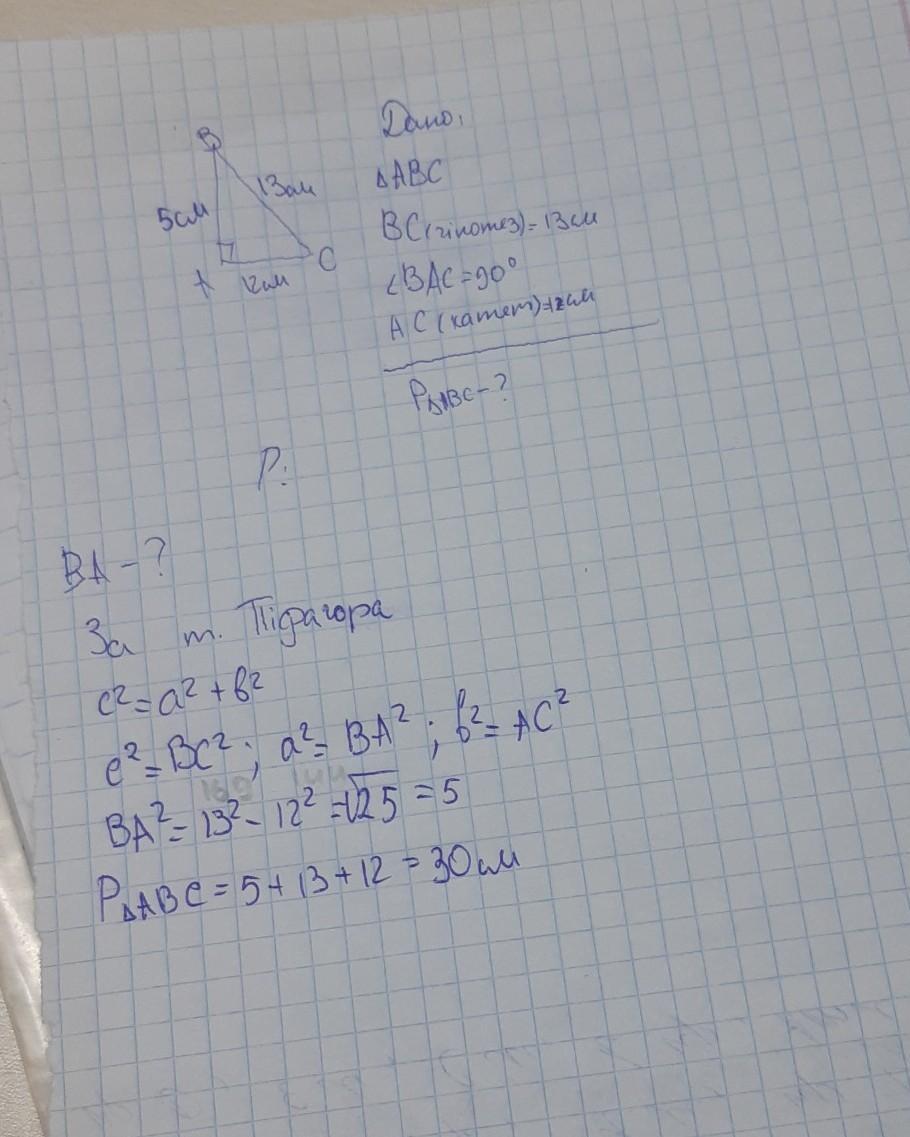 B
5см
13см
A
12см
C
Дано:
△ABC
BC(гіпотез)=13см
∠BAC=90°
AC (катет)=12см
P△ABC-?
Р:
BA-?
За т. Піфагора
c²=a²+b²
c²=BC²; a²=BA²; b²=AC²
169 144
BA²=13²-12²=√25=5
P△ABC=5+13+12=30см